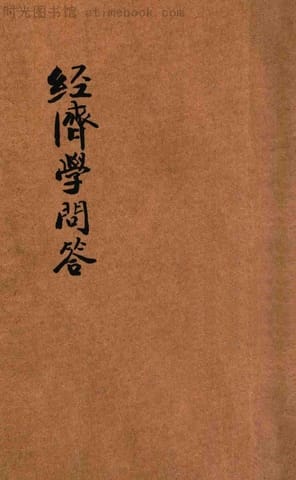 时光图书馆 atimebook.com
经濟學問答